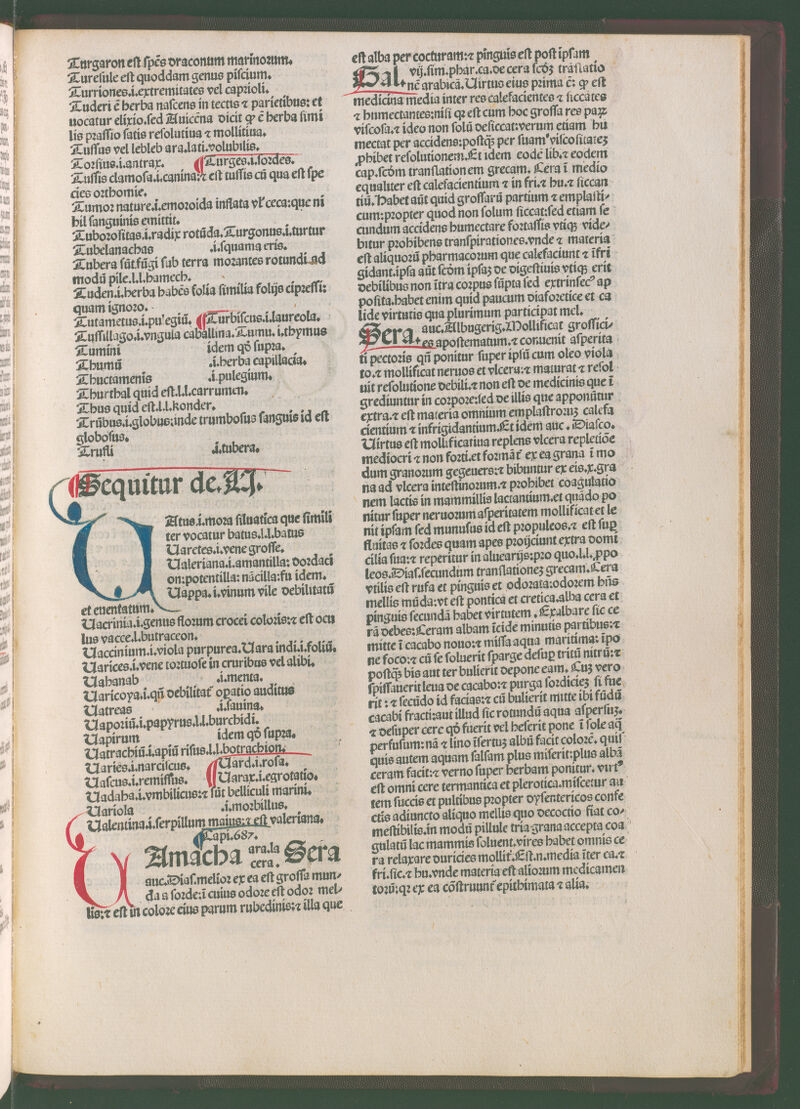 Turgaron est spēs draconum marinorum.
Turesule est quoddam genus piscium.
Turriones .i. extremitates vel caprioli.
Tuderi ē herba nascens in tectis ⁊ parietibus: et
uocatur elixio. sed Auicēna dicit ꝙ ē herba simi
lis prassio satis resolutiua ⁊ mollitiua.
Tussus vel lebleb ara. lati. volubilis.
Torsius .i. antrax. ¶ Turges .i. sordes.
Tussis clamosa .i. canina: ⁊ est tussis cū qua est spe
cies orthomie.
Tumor nature .i. emoroida inflata vl̄ ceca: que ni
hil sanguinis emittit.
Tuborositas .i. radix rotūda. Turgonus .i. turtur
Tubelanachas .i. squama eris.
Tubera sūt fūgi sub terra morantes rotundi ad
modū pile. l.l. hamech.
Tuden .i. herba habēs folia similia folijs cipressi:
quam ignoro.
Tutametus .i. pulegiū. ¶ Turbiscus .i. laureola.
Tussillago .i. vngula caballina. Tumu .i. thymus
Tumini idem qd̄ supra.
Thumū .i. herba capillacia.
Thuctamenis .i. pulegium.
Thurthal quid est. l.l. carrumen.
Thus quid est. l.l. konder.
Trūbus .i. globus: inde trumbosus sanguis id est
globosus.
Trufli .i. tubera.
¶ Sequitur de. U.
UAtus .i. mora siluatica que simili
ter vocatur batus. l.l. batus
Uaretes .i. vene grosse.
Ualeriana .i. amantilla: dordaci
on: potentilla: nācilla: fu idem.
Uappa .i. vinum vile debilitatū
et euentatum.
Uacrinia .i. genus florum crocei coloris: ⁊ est ocu
lus vacce. l. butraccon.
Uaccinium .i. viola purpurea. Uara indi .i. foliū.
Uarices .i. vene tortuose in cruribus vel alibi.
Uahanab .i. menta.
Uaricoya .i. qn̄ debilitat̄ opatio auditus
Uatreas .i. sauina.
Uaporiū .i. papyrus. l.l. burchidi.
Uapirum idem qd̄ supra.
Uatrachiū .i. apiū risus. l.l. botrachion.
Uaries .i. narciscus. ¶ Uard .i. rosa.
Uascus .i. remissus. ¶ Uarax .i. egrotatio.
Uadaha .i. vmbilicus: ⁊ sūt belliculi marini.
Uariola .i. morbillus.
Ualentina .i. serpillum maius: ⁊ est valeriana.
¶ Capi. 687.
UAmacha ara. la cera. Sera
auc. Dias. melior ex ea est grossa mun-
da a sorde: ī cuius odore est odor mel-
lis: ⁊ est in colore eius parum rubedinis: ⁊ illa que
est alba per cocturam: ⁊ pinguis est post ipsam
Gal. vij. sim. phar. ca. de cera scd̄z trāslatio
nē arabicā. Uirtus eius prima ē: ꝙ est
medicina media inter res calefacientes ⁊ siccātes
⁊ humectantes: nisi qr est cum hoc grossa res parū
viscosa. ⁊ ideo non solū desiccat: verum etiam hu
mectat per accidens: postq̄ per suam viscositatez
ꝓhibet resolutionem. Et idem eodē lib. ⁊ eodem
cap. scd̄m translationem grecam. Cera ī medio
equaliter est calefacientium ⁊ in fri. ⁊ hu. ⁊ siccan
tiū. Habet aūt quid grossarū partium ⁊ emplasti-
cum: propter quod non solum siccat: sed etiam se
cundum accidens humectare fortassis vtiq̄ vide-
bitur prohibens transpirationes. vnde ⁊ materia
est aliquorū pharmacorum que calefaciunt ⁊ īfri
gidant. ipsa aūt scd̄m ipsaz de digestiuis vtiq̄ erit
debilibus non ītra corpus sūpta sed extrinsec⁹ ap
posita. habet enim quid paucum diaforetice et ca
lide virtutis qua plurimum participat mel.
Sera. auc. Albugerig. Mollificat grossici-
es apostematum. ⁊ conuenit asperita
ti pectoris qn̄ ponitur super ipsū cum oleo viola
to. ⁊ mollificat neruos et vlcera: ⁊ maturat ⁊ resol
uit resolutione debili. ⁊ non est de medicinis que ī
grediuntur in corpore: sed de illis que apponūtur
extra. ⁊ est materia omnium emplastroruz calefa
cientium ⁊ infrigidantium. Et idem auc. Diasco.
Uirtus est mollificatiua replens vlcera repletiōe
mediocri ⁊ non forti. et formāt̄ ex ea grana ī mo
dum granorum gegeuers: ⁊ bibuntur ex eis. x. gra
na ad vlcera intestinorum. ⁊ prohibet coagulatio
nem lactis in mammillis lactantium. et quādo po
nitur super neruorum asperitatem mollificat et le
nit ipsam sed munusus id est propuleos. ⁊ est sup̄
fluitas ⁊ sordes quam apes proijciunt extra domi
cilia sua: ⁊ reperitur in aluearijs: pro quo. l.l. ꝓpo
leos. Dias. secundum translationez grecam. Cera
vtilis est rufa et pinguis et odorata: odorem hn̄s
mellis mūda: vt est pontica et cretica. alba cera et
pinguis secundā habet virtutem. Exalbare sic ce
rā debes: Ceram albam īcide minutis partibus: ⁊
mitte ī cacabo nouo: ⁊ missa aqua maritima: īpo
ne foco: ⁊ cū se soluerit sparge desup̄ tritū nitrū: ⁊
postq̄ bis aut ter bulierit depone eam. Cuz vero
spissauerit leua de cacabo: ⁊ purga sordiciez si fue
rit: ⁊ secūdo id facias: ⁊ cū bulierit mitte ibi fūdū
cacabi fracti: aut illud sic rotundū aqua aspersuz.
⁊ desuper cere qd̄ fuerit vel heserit pone ī sole aq̄
perfusum: nā ⁊ lino īsertuz albū facit colorē. quis
quis autem aquam salsam plus miserit: plus albā
ceram facit: ⁊ verno super herbam ponitur. virt⁹
est omni cere termantica et plerotica. miscetur au
tem succis et pultibus propter dysentericos confe
ctis adiuncto aliquo mellis quo decoctio fiat co-
mestibilis. in modū pillule tria grana accepta coa
gulatū lac mammis soluent. vires habet omnis ce
ra relaxare duricies mollit̄. Est. n. media īter ca. ⁊
fri. sic. ⁊ hu. vnde materia est aliorum medicamen
torū: qr ex ea cōstruunt̄ epithimata ⁊ alia.